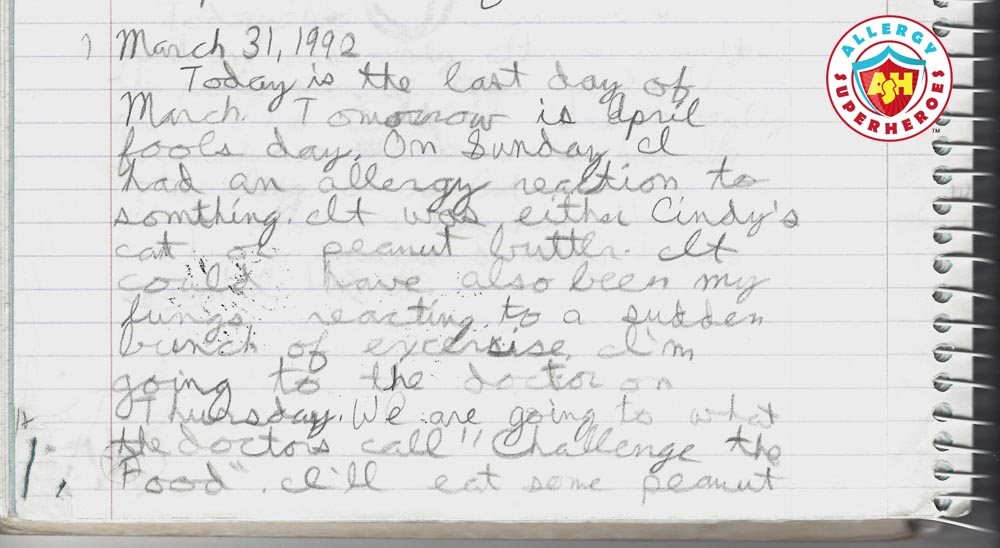 March 31, 1992
Today is the last day of
March. Tomorrow is April
fools day. On Sunday I
had an allergy reaction to
somthing. It was either Cindy's
cat or peanut butter. It
could have also been my
fungs reacting to a sudden
bunch of excersise. I'm
going to the doctor on
Thursday. We are going to what
the doctors call "Challenge the
Food". I'll eat some peanut
ALLERGY
ASH
SUPERHEROES
TM